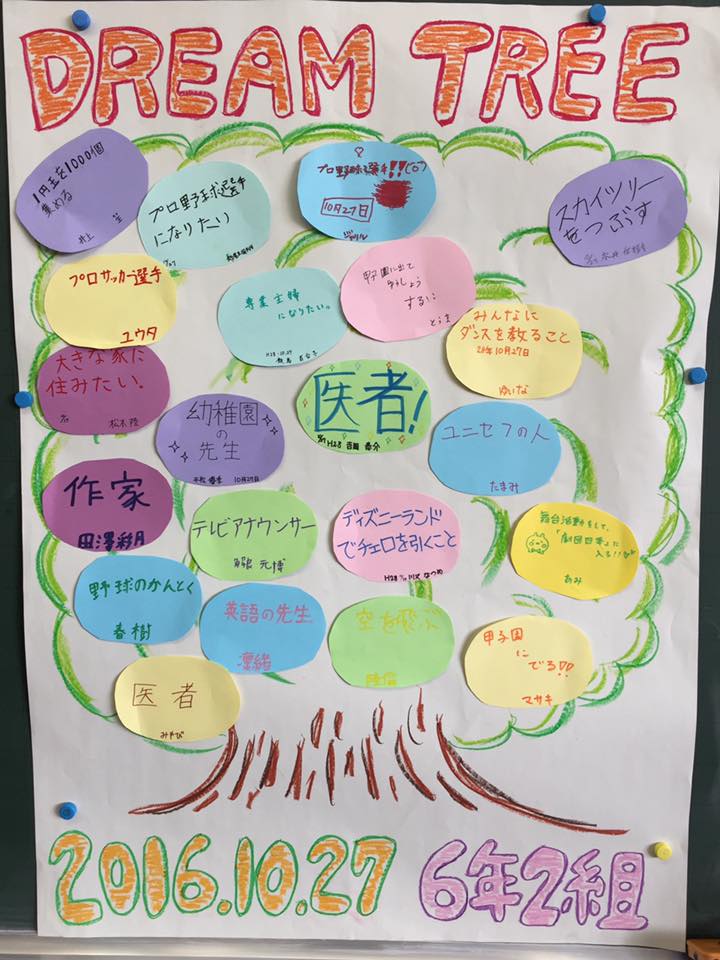 DREAM TREE
1円玉を1000個
集める
井上
プロ野球選手
になりたい
10/27
プロ野球選手!!
10月27日
スカイツリー
をつぶす
プロサッカー選手
ユウタ
専業主婦
になりたい。
H28.10.27
甲子園に出て
する!
とうま
みんなに
ダンスを教ること
10月27日
ゆいな
大きな家に
住みたい。
松本
幼稚園
の
先生
10月27日
医者!
H28
ユニセフの人
たまみ
作家
田澤彩月
テレビアナウンサー
元博
ディズニーランド
でチェロを引くこと
H28
なつめ
舞台活動をして、
「劇団四季」に
入る!!
あみ
野球のかんとく
春樹
英語の先生
凜緒
空を飛ぶ
甲子園
に
でる!!
マサキ
医者
みやび
2016.10.27 6年2組